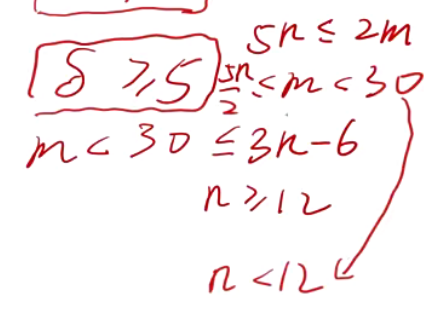 5n ≤ 2m
δ ≥ 5
5n/2 ≤ m < 30
m < 30 ≤ 3n-6
n ≥ 12
n < 12